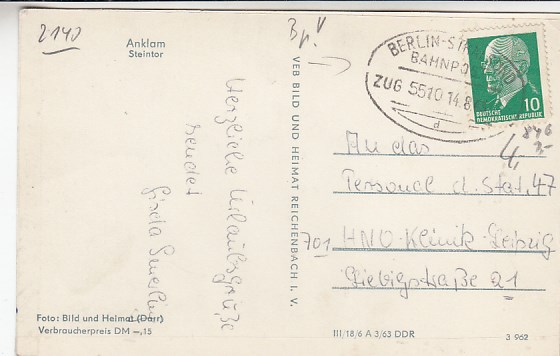 2140
Anklam
Steintor
Herzliche Urlaubsgrüße
sendet
Gisela
VEB BILD UND HEIMAT REICHENBACH I. V.
BERLIN-
BAHNPO
ZUG 5510 14.8
d
10
DEUTSCHE
DEMOKRATISCHE REPUBLIK
An das
Personal d. Stat. 47
701 HNO-Klinik-Leipzig
Liebigstraße 21
Foto: Bild und Heimat (Dörr)
Verbraucherpreis DM –,15
III/18/6 A 3/63 DDR
3 962